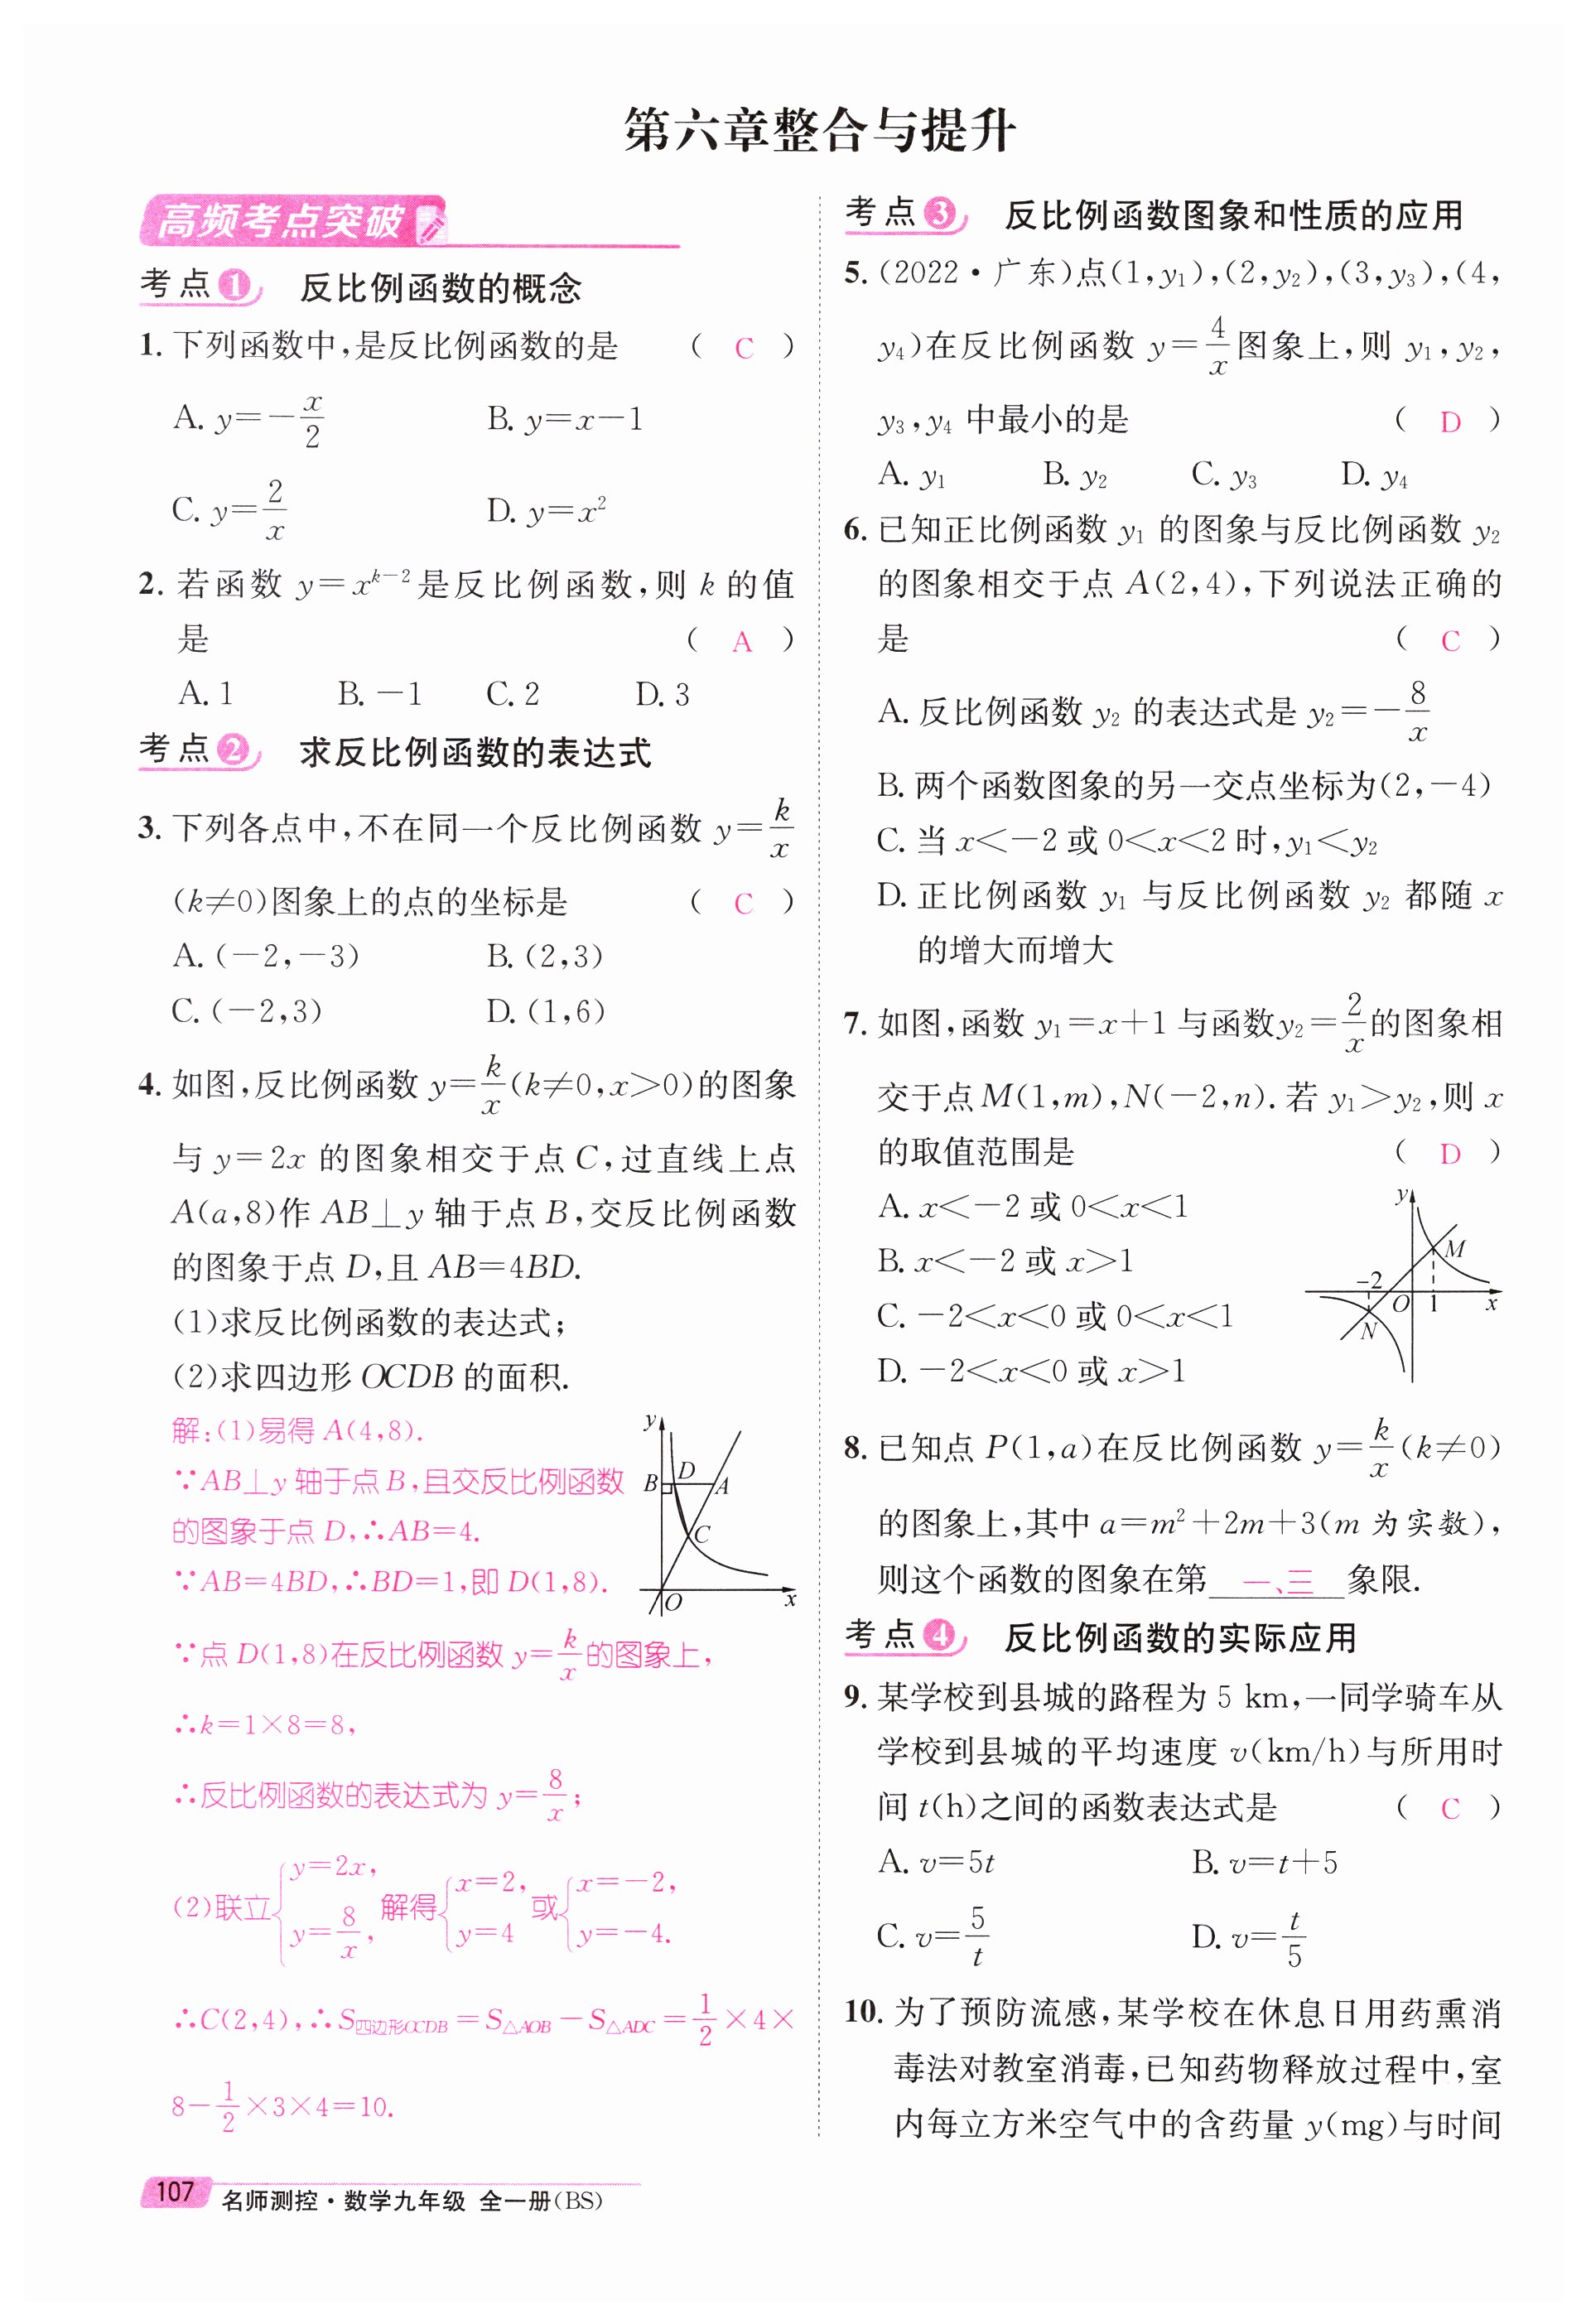 第六章整合与提升
高频考点突破
考点1 反比例函数的概念
1. 下列函数中,是反比例函数的是 ( C )
A. y=-x/2 B. y=x-1
C. y=2/x D. y=x²
2. 若函数 y=x^(k-2)是反比例函数,则 k 的值
是 ( A )
A. 1 B. -1 C. 2 D. 3
考点2 求反比例函数的表达式
3. 下列各点中,不在同一个反比例函数 y=k/x
(k≠0)图象上的点的坐标是 ( C )
A. (-2,-3) B. (2,3)
C. (-2,3) D. (1,6)
4. 如图,反比例函数 y=k/x(k≠0,x>0)的图象
与 y=2x 的图象相交于点 C,过直线上点
A(a,8)作 AB⊥y 轴于点 B,交反比例函数
的图象于点 D,且 AB=4BD.
(1)求反比例函数的表达式;
(2)求四边形 OCDB 的面积.
解:(1)易得 A(4,8).
∵AB⊥y 轴于点 B,且交反比例函数
的图象于点 D,∴AB=4.
∵AB=4BD,∴BD=1,即 D(1,8).
y
B D A
C
O x
∵点 D(1,8)在反比例函数 y=k/x的图象上,
∴k=1×8=8,
∴反比例函数的表达式为 y=8/x;
(2)联立{y=2x, y=8/x, 解得{x=2, y=4 或{x=-2, y=-4.
∴C(2,4),∴S四边形OCDB=S△AOB-S△ADC=1/2×4×
8-1/2×3×4=10.
107 名师测控·数学九年级 全一册(BS)
考点3 反比例函数图象和性质的应用
5. (2022·广东)点(1,y₁),(2,y₂),(3,y₃),(4,
y₄)在反比例函数 y=4/x图象上,则 y₁,y₂,
y₃,y₄ 中最小的是 ( D )
A. y₁ B. y₂ C. y₃ D. y₄
6. 已知正比例函数 y₁ 的图象与反比例函数 y₂
的图象相交于点 A(2,4),下列说法正确的
是 ( C )
A. 反比例函数 y₂ 的表达式是 y₂=-8/x
B. 两个函数图象的另一交点坐标为(2,-4)
C. 当 x<-2 或 0<x<2 时,y₁<y₂
D. 正比例函数 y₁ 与反比例函数 y₂ 都随 x
的增大而增大
7. 如图,函数 y₁=x+1 与函数y₂=2/x的图象相
交于点M(1,m),N(-2,n). 若 y₁>y₂,则 x
的取值范围是 ( D )
A. x<-2 或 0<x<1
B. x<-2 或 x>1
C. -2<x<0 或 0<x<1
D. -2<x<0 或 x>1
y
M
-2
O 1 x
N
8. 已知点 P(1,a)在反比例函数 y=k/x(k≠0)
的图象上,其中 a=m²+2m+3(m 为实数),
则这个函数的图象在第 一、三 象限.
考点4 反比例函数的实际应用
9. 某学校到县城的路程为 5 km,一同学骑车从
学校到县城的平均速度 v(km/h)与所用时
间 t(h)之间的函数表达式是 ( C )
A. v=5t B. v=t+5
C. v=5/t D. v=t/5
10. 为了预防流感,某学校在休息日用药熏消
毒法对教室消毒,已知药物释放过程中,室
内每立方米空气中的含药量 y(mg)与时间